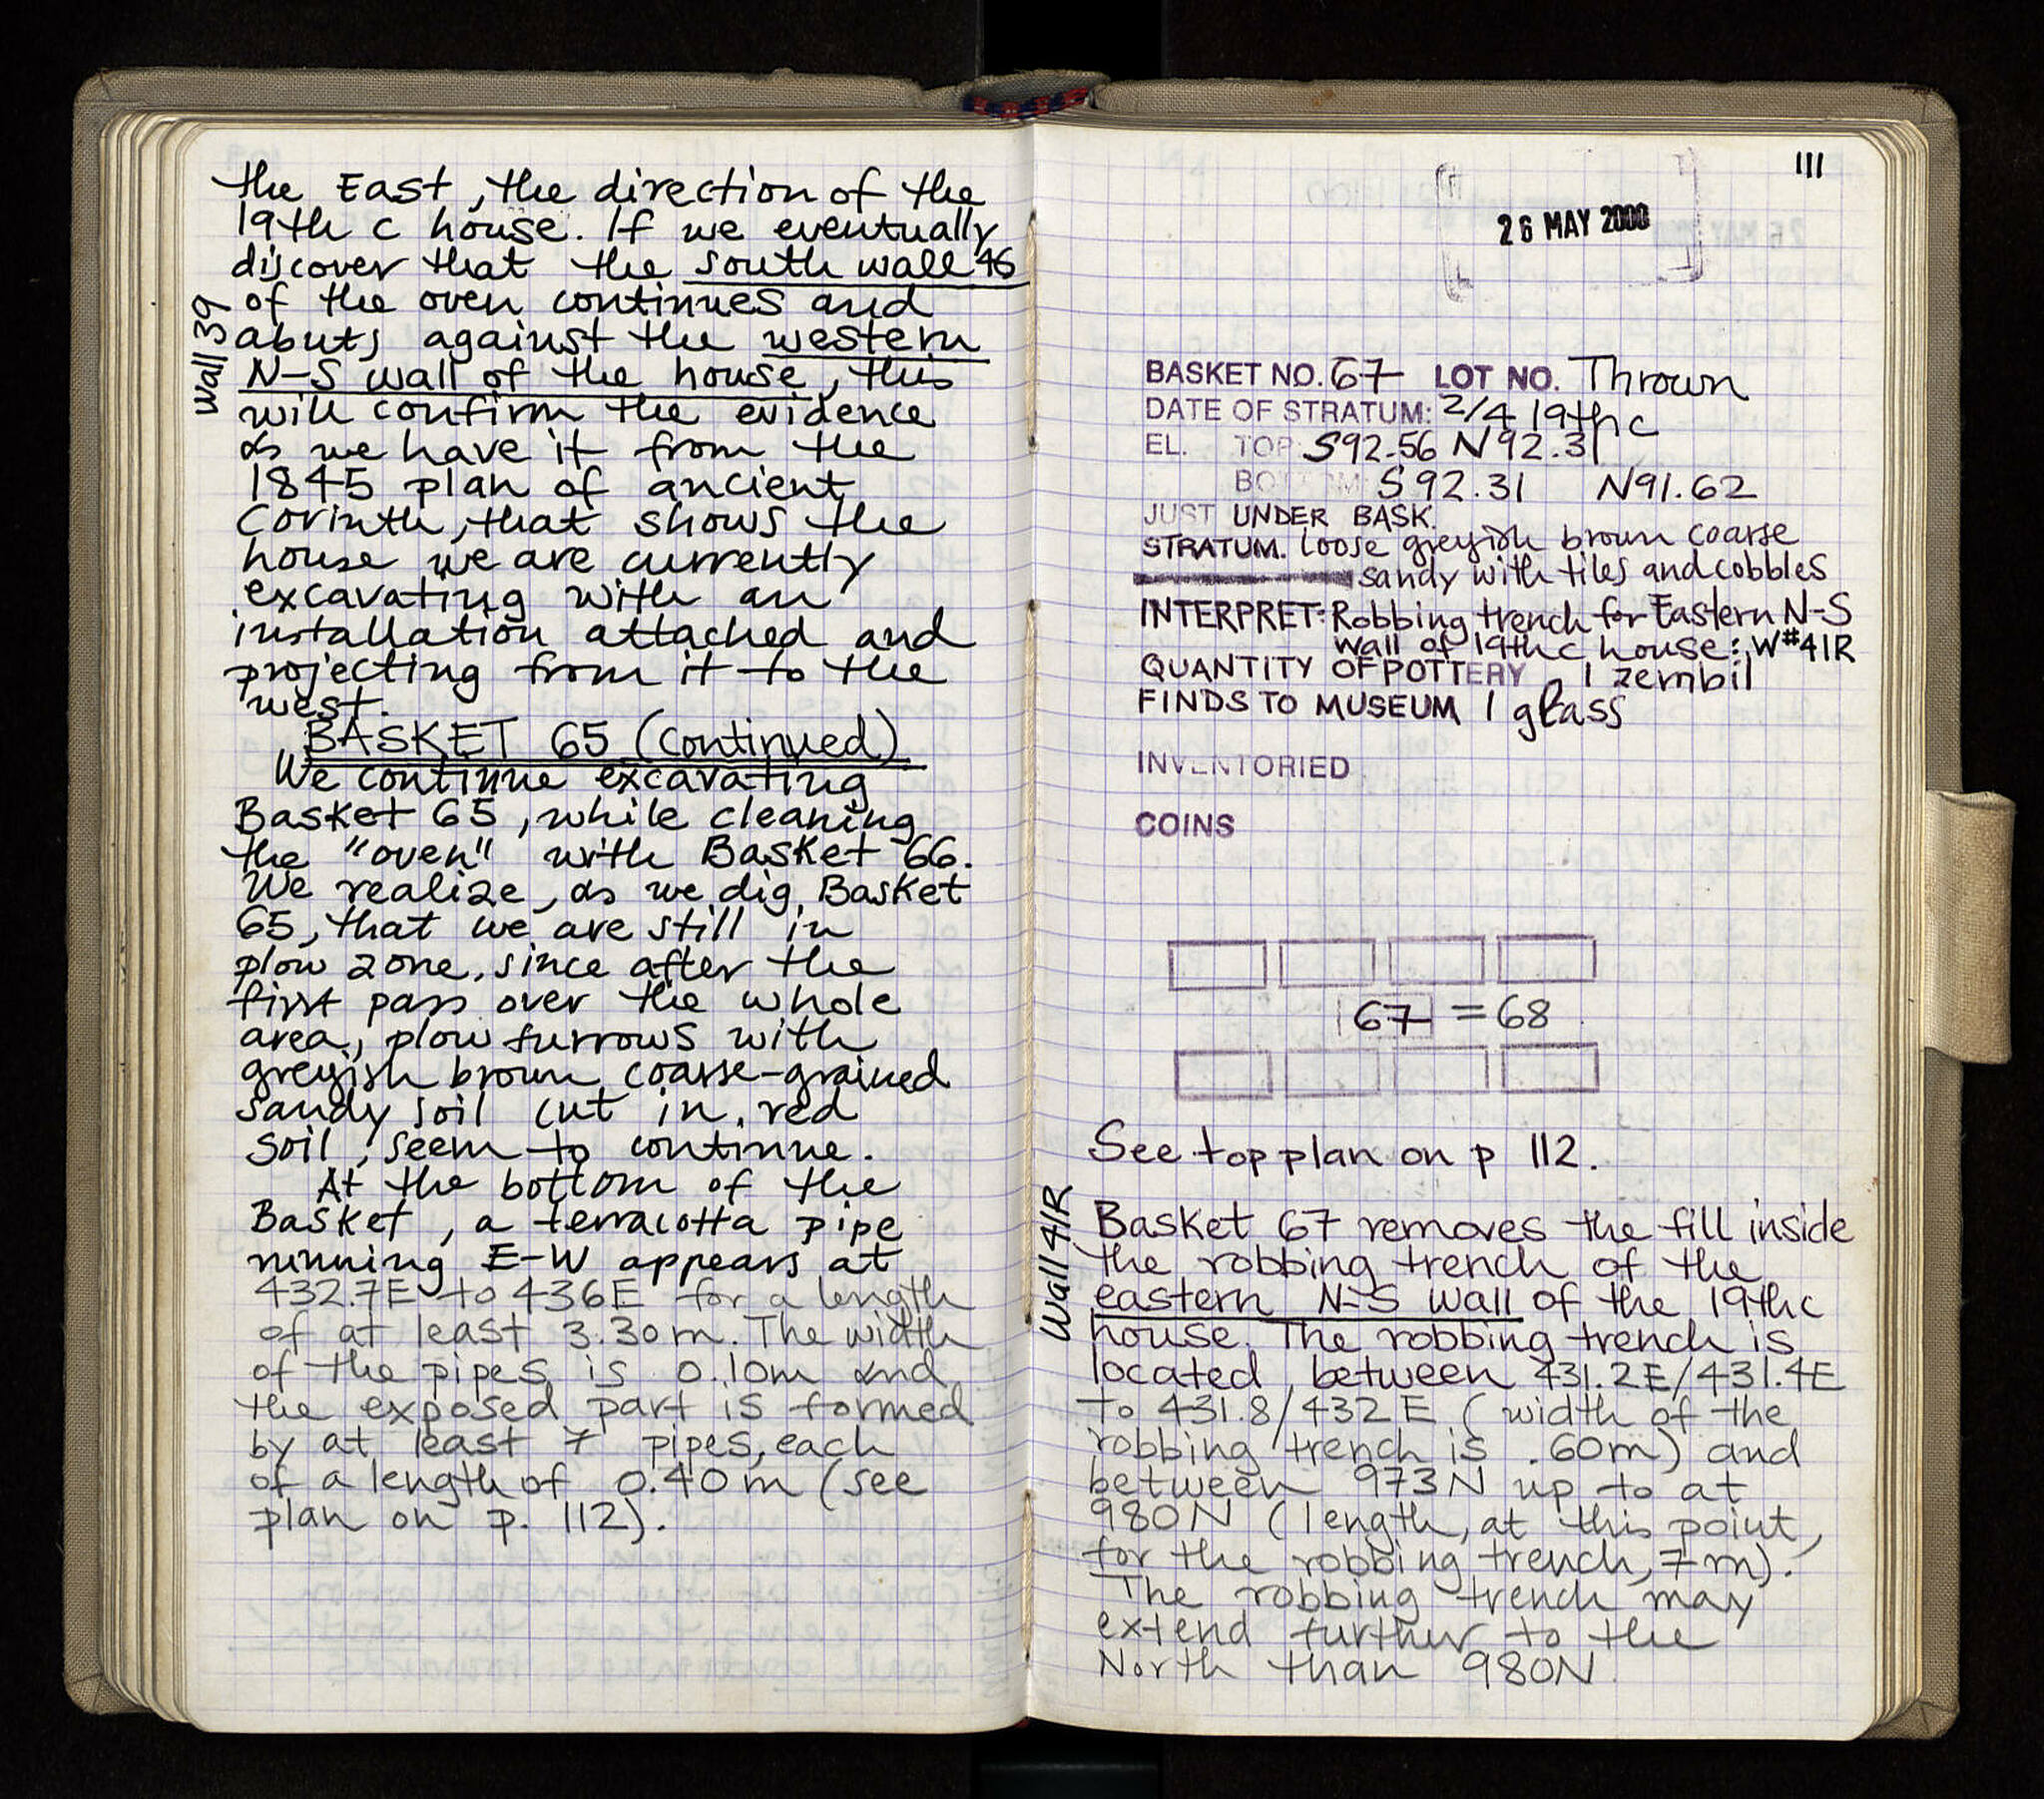 the East, the direction of the
19th c house. If we eventually
discover that the south wall 46
of the oven continues and
abuts against the western
N-S wall of the house, this
will confirm the evidence
as we have it from the
1845 plan of ancient
Corinth, that shows the
house we are currently
excavating with an
installation attached and
projecting from it to the
west.
Wall 39
BASKET 65 (continued)
We continue excavating
Basket 65, while cleaning
the "oven" with Basket 66.
We realize, as we dig Basket
65, that we are still in
plow zone, since after the
first pass over the whole
area, plow furrows with
greyish brown coarse-grained
sandy soil cut in red
soil, seem to continue.
At the bottom of the
Basket, a terracotta pipe
running E-W appears at
432.7E to 436E for a length
of at least 3.30m. The width
of the pipes is 0.10m and
the exposed part is formed
by at least 7 pipes, each
of a length of 0.40m (see
plan on p. 112).
111
26 MAY 2000
BASKET NO. 67 LOT NO. Thrown
DATE OF STRATUM: 2/4 19th c
EL. TOP S92.56 N92.31
BOTTOM S92.31 N91.62
JUST UNDER BASK.
STRATUM. loose greyish brown coarse
sandy with tiles and cobbles
INTERPRET: Robbing trench for Eastern N-S
wall of 19th c house: W#41R
QUANTITY OF POTTERY 1 zembil
FINDS TO MUSEUM 1 glass
INVENTORIED
COINS
67 = 68
See top plan on p 112.
Wall 41R
Basket 67 removes the fill inside
the robbing trench of the
eastern N-S wall of the 19th c
house. The robbing trench is
located between 431.2E/431.4E
to 431.8/432E (width of the
robbing trench is .60m) and
between 973N up to at
980N (length, at this point,
for the robbing trench, 7m).
The robbing trench may
extend further to the
North than 980N.